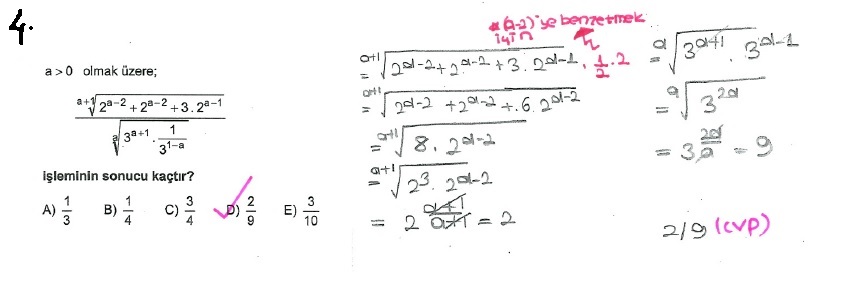 4.
a > 0 olmak üzere;
\frac{\sqrt[a+1]{2^{a-2} + 2^{a-2} + 3 . 2^{a-1}}}{\sqrt[a]{3^{a+1} . \frac{1}{3^{1-a}}}}
işleminin sonucu kaçtır?
A) 1/3 B) 1/4 C) 3/4 D) 2/9 E) 3/10
*(a-2)'ye benzetmek
için
= \sqrt[a+1]{2^{a-2} + 2^{a-2} + 3 . 2^{a-1} . \frac{1}{2} . 2}
= \sqrt[a+1]{2^{a-2} + 2^{a-2} + 6 . 2^{a-2}}
= \sqrt[a+1]{8 . 2^{a-2}}
= \sqrt[a+1]{2^3 . 2^{a-2}}
= 2^{\frac{a+1}{a+1}} = 2
= \sqrt[a]{3^{a+1} . 3^{a-1}}
= \sqrt[a]{3^{2a}}
= 3^{\frac{2a}{a}} = 9
2/9 (cvp)